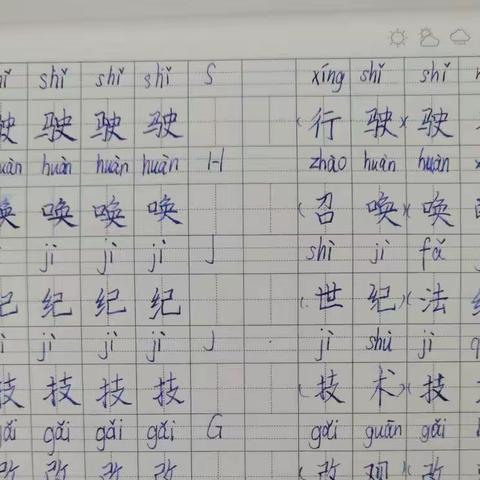 shǐ shǐ shǐ S xíng shǐ shǐ
驶 驶 驶 驶 (行 驶)(驶
huàn huàn huàn huàn H zhào huàn huàn
唤 唤 唤 唤 (召 唤)(唤
jì jì jì J shì jì fǎ
纪 纪 纪 纪 (世 纪)(法
jì jì jì J jì shù jì
技 技 技 技 (技 术)(技
gǎi gǎi gǎi gǎi G gǎi guān gǎi
改 改 改 改 (改 观)(改